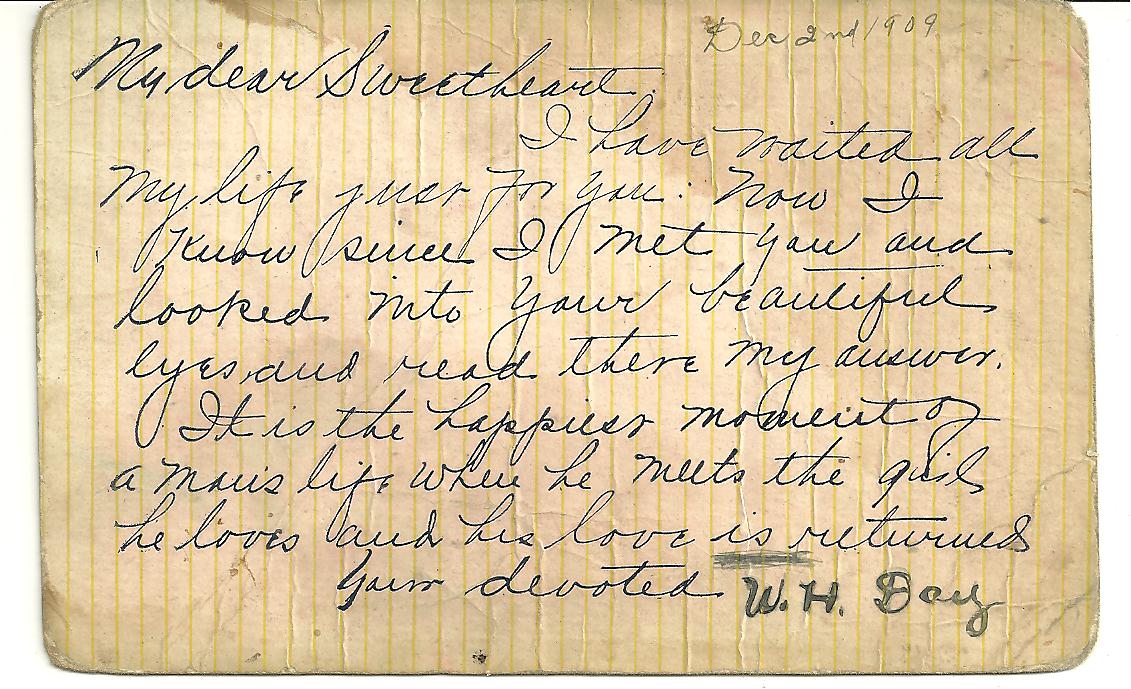 Dec 2nd 1909
My dear Sweetheart.
I have waited all
my life just for you. Now I
know since I met you and
looked into your beautiful
eyes and read there my answer.
It is the happiest moment of
a man's life when he meets the girl
he loves and his love is returned
Your devoted W. H. Day